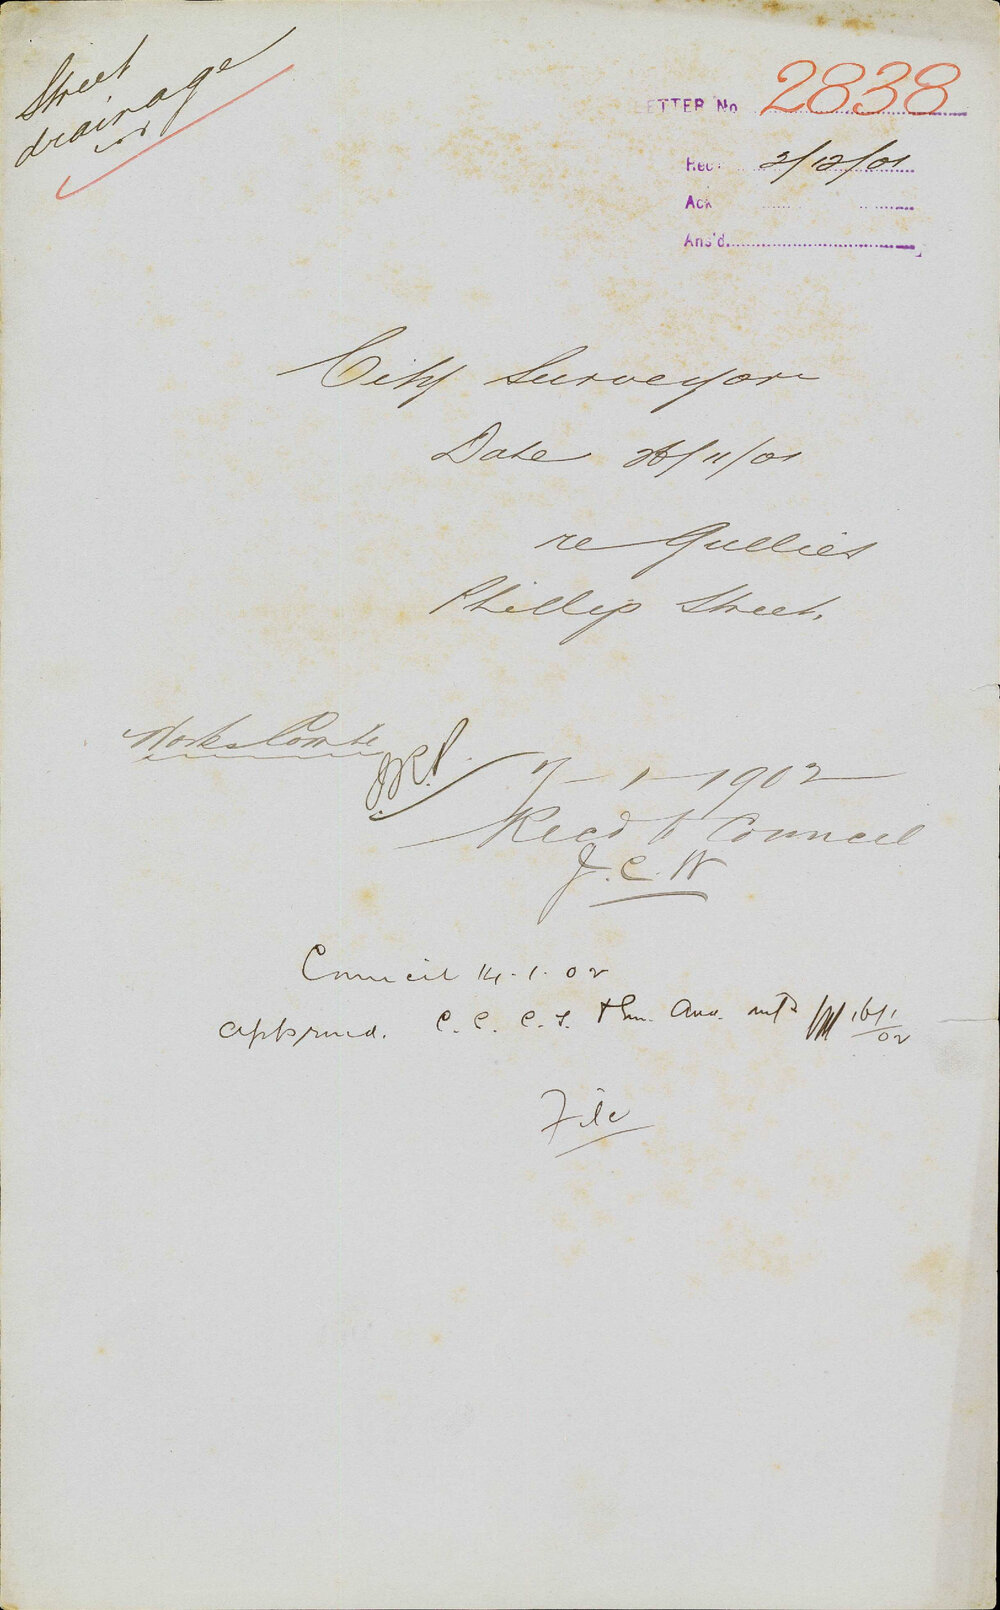 Street
drainage
LETTER No 2838
Rec 2/12/01
Ack
Ans'd.
City Surveyor
Date /11/01
re Gullies
Phillip Street,
Works Comte
7-1-1902
Recd to Council
J.C.W
Council 14.1.02
approved. C.C. C.S. Aud. 16/1/02
File